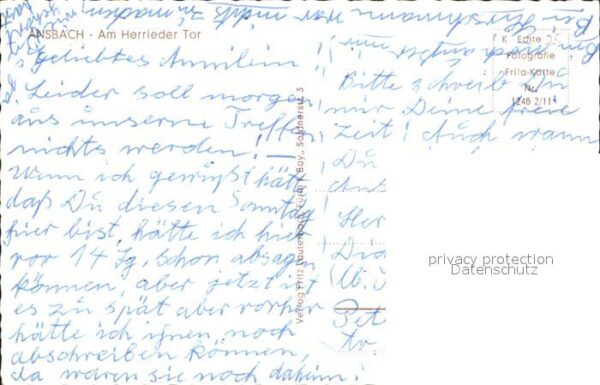 ANSBACH - Am Herrieder Tor
Geliebtes Annilein!
Leider soll morgen
aus unserm Treffen
nichts werden! —
Wenn ich gewußt hätt
daß Du diesen Sonntag
hier bist, hätte ich hier
vor 14 Tg. schon absagen
können, aber jetzt ist
es zu spät aber vorher
hätte ich ihnen noch
abschreiben können,
da waren sie noch daheim!
Verlag Fritz Lauterbach, Fürth i. Bay., Soldnerstr. 3
K Echte
Fotografie
Frila-Karte
Nr.
1246 2/11
Bitte schreib
mir Deine freie
Zeit! Auch wann
Du
Her
Pet
privacy protection
Datenschutz